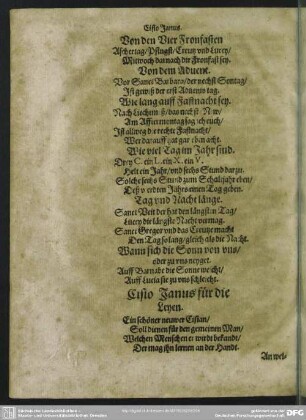 Cisio Janus.
Von den Vier Fronfasten
Aschertag/Pfingst/Creutz vnd Lucey/
Mitwoch darnach die Fronfast sey.
Von dem Aduent.
Vor Sanct Barbara/der nechst Sontag/
Ist gewiß der erst Aduents tag.
Wie lang auff Fastnacht sey.
Nach Liechtmeß/das nechst New/
Am Afftermontag sag ich euch/
Ist allweg die rechte Fastnacht/
Wer darauff gut gar eben acht.
Wie viel Tag im Jahr sind.
Drey C. ein L. ein X. ein V.
Helt ein Jahr/vnd sechs Stund darzu.
Solche sechs Stund zum Schaltjahr eben/
Deß vierdten Jahrs einen Tag geben.
Tag vnd Nacht länge.
Sanct Veit der hat den längsten Tag/
Lucey die längste Nacht vermag.
Sanct Gregor vnd das Creutz macht
Den Tag so lang/gleich als die Nacht.
Wann sich die Sonn von vns/
oder zu vns neyget.
Auff Barnabe die Sonne weicht/
Auff Lucia sie zu vns schleicht.
Cisio Janus für die
Leyen.
Ein schöner neuwer Cisian/
Soll dienen für den gemeinen Man/
Welchen Menschen er wirdt bekandt/
Der mag jhn lernen an der Handt.
An wel-